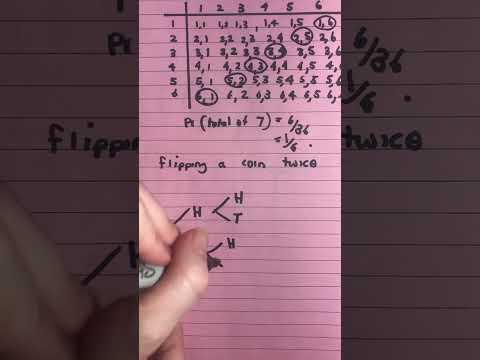 1 2 3 4 5 6
1 1,1 1,2 1,3 1,4 1,5 1,6
2 2,1 2,2 2,3 2,4 2,5 2,6
3 3,1 3,2 3,3 3,4 3,5 3,6
4 4,1 4,2 4,3 4,4 4,5 4,6
5 5,1 5,2 5,3 5,4 5,5 5,6
6 6,1 6,2 6,3 6,4 6,5 6,6
Pr (total of 7) = 6/36
= 1/6.
flipping a coin twice
H
H
T
H